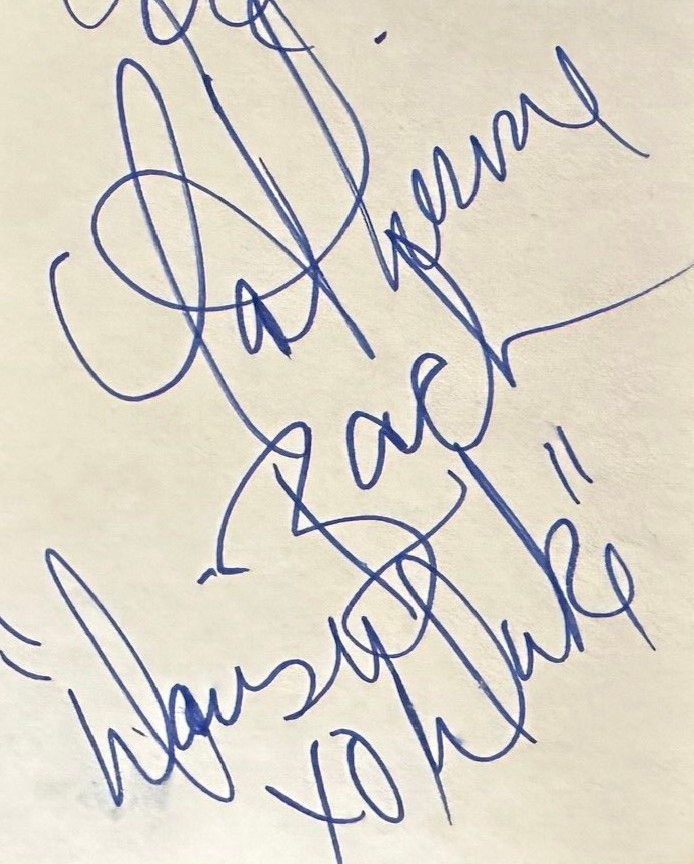 Catherine
Bach
"Daisy Duke"
XO